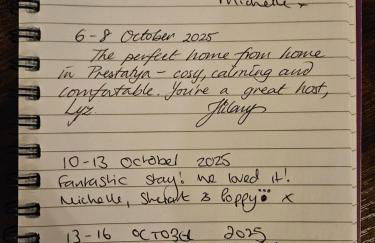 Michelle x
6-8 October 2025
The perfect home from home
in Prestatyn - cosy, calming and
comfortable. You're a great host,
Lyz. Hilary
10-13 October 2025
Fantastic stay! We loved it!
Michelle, Stewart & Poppy x
13-16 OCTOBER 2025